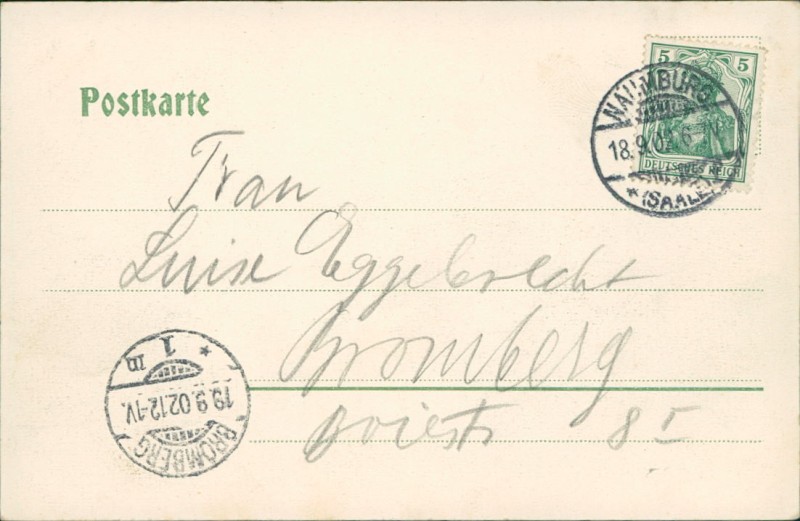 Postkarte
5 5
DEUTSCHES REICH
NAUMBURG
18.9.02 6-
* (SAALE)
Frau
Luise Eggebrecht
Bromberg
85
* BROMBERG *
19.9.02.12-1V.
1 m